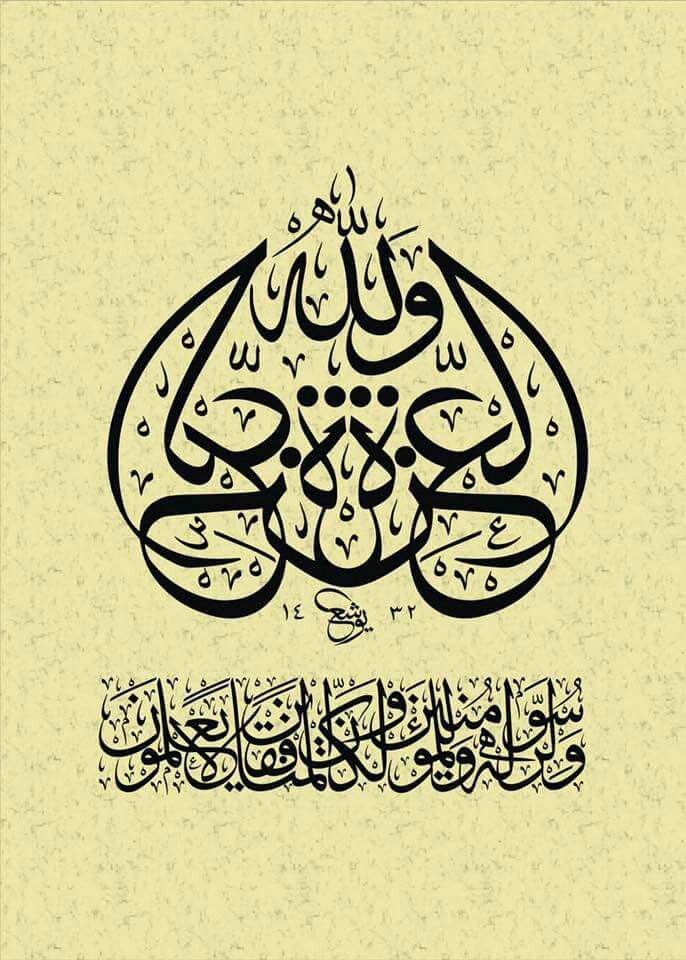 ولله
العزة
١٤ يوشع ٣٢
ولرسوله وللمؤمنين ولكن المنافقين لا يعلمون